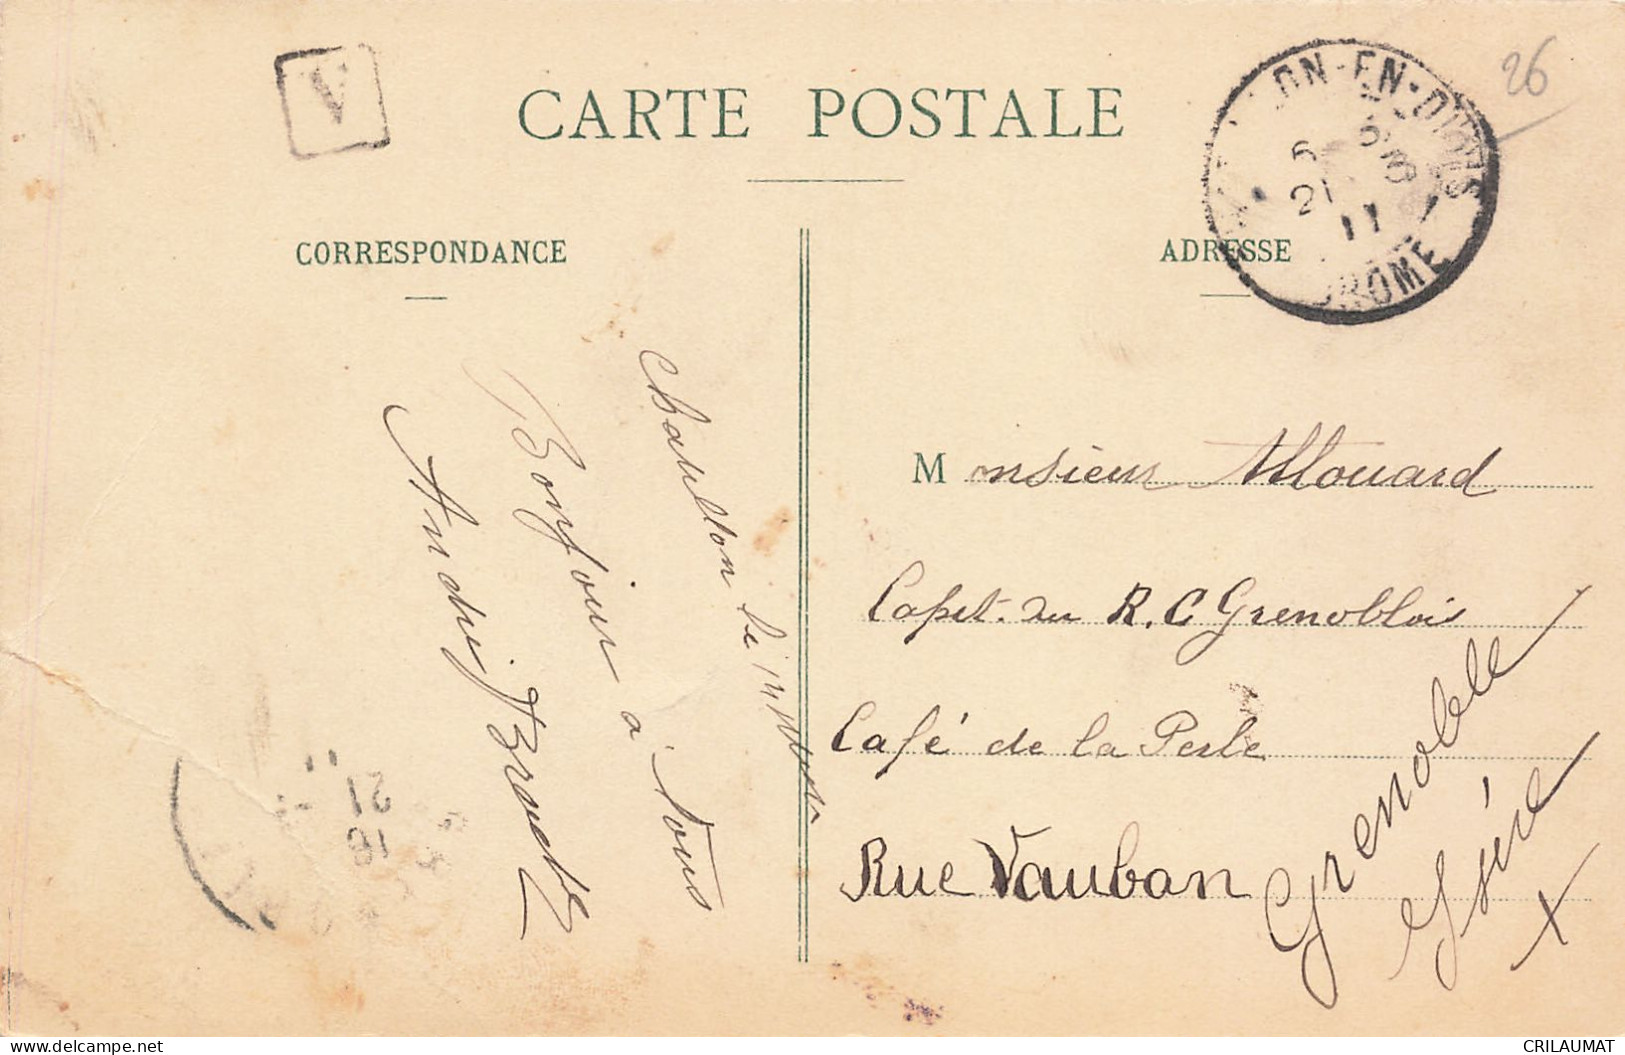 V
CARTE POSTALE
26
ON-EN-DIOIS
21
11
DROME
CORRESPONDANCE
ADRESSE
Chatillon le
Bonjour à tous
André
Monsieur Allouard
Capit. du R.C Grenoblois
Café de la Perle
Rue Vauban
Grenoble
Isère
21
16
CRILAUMAT